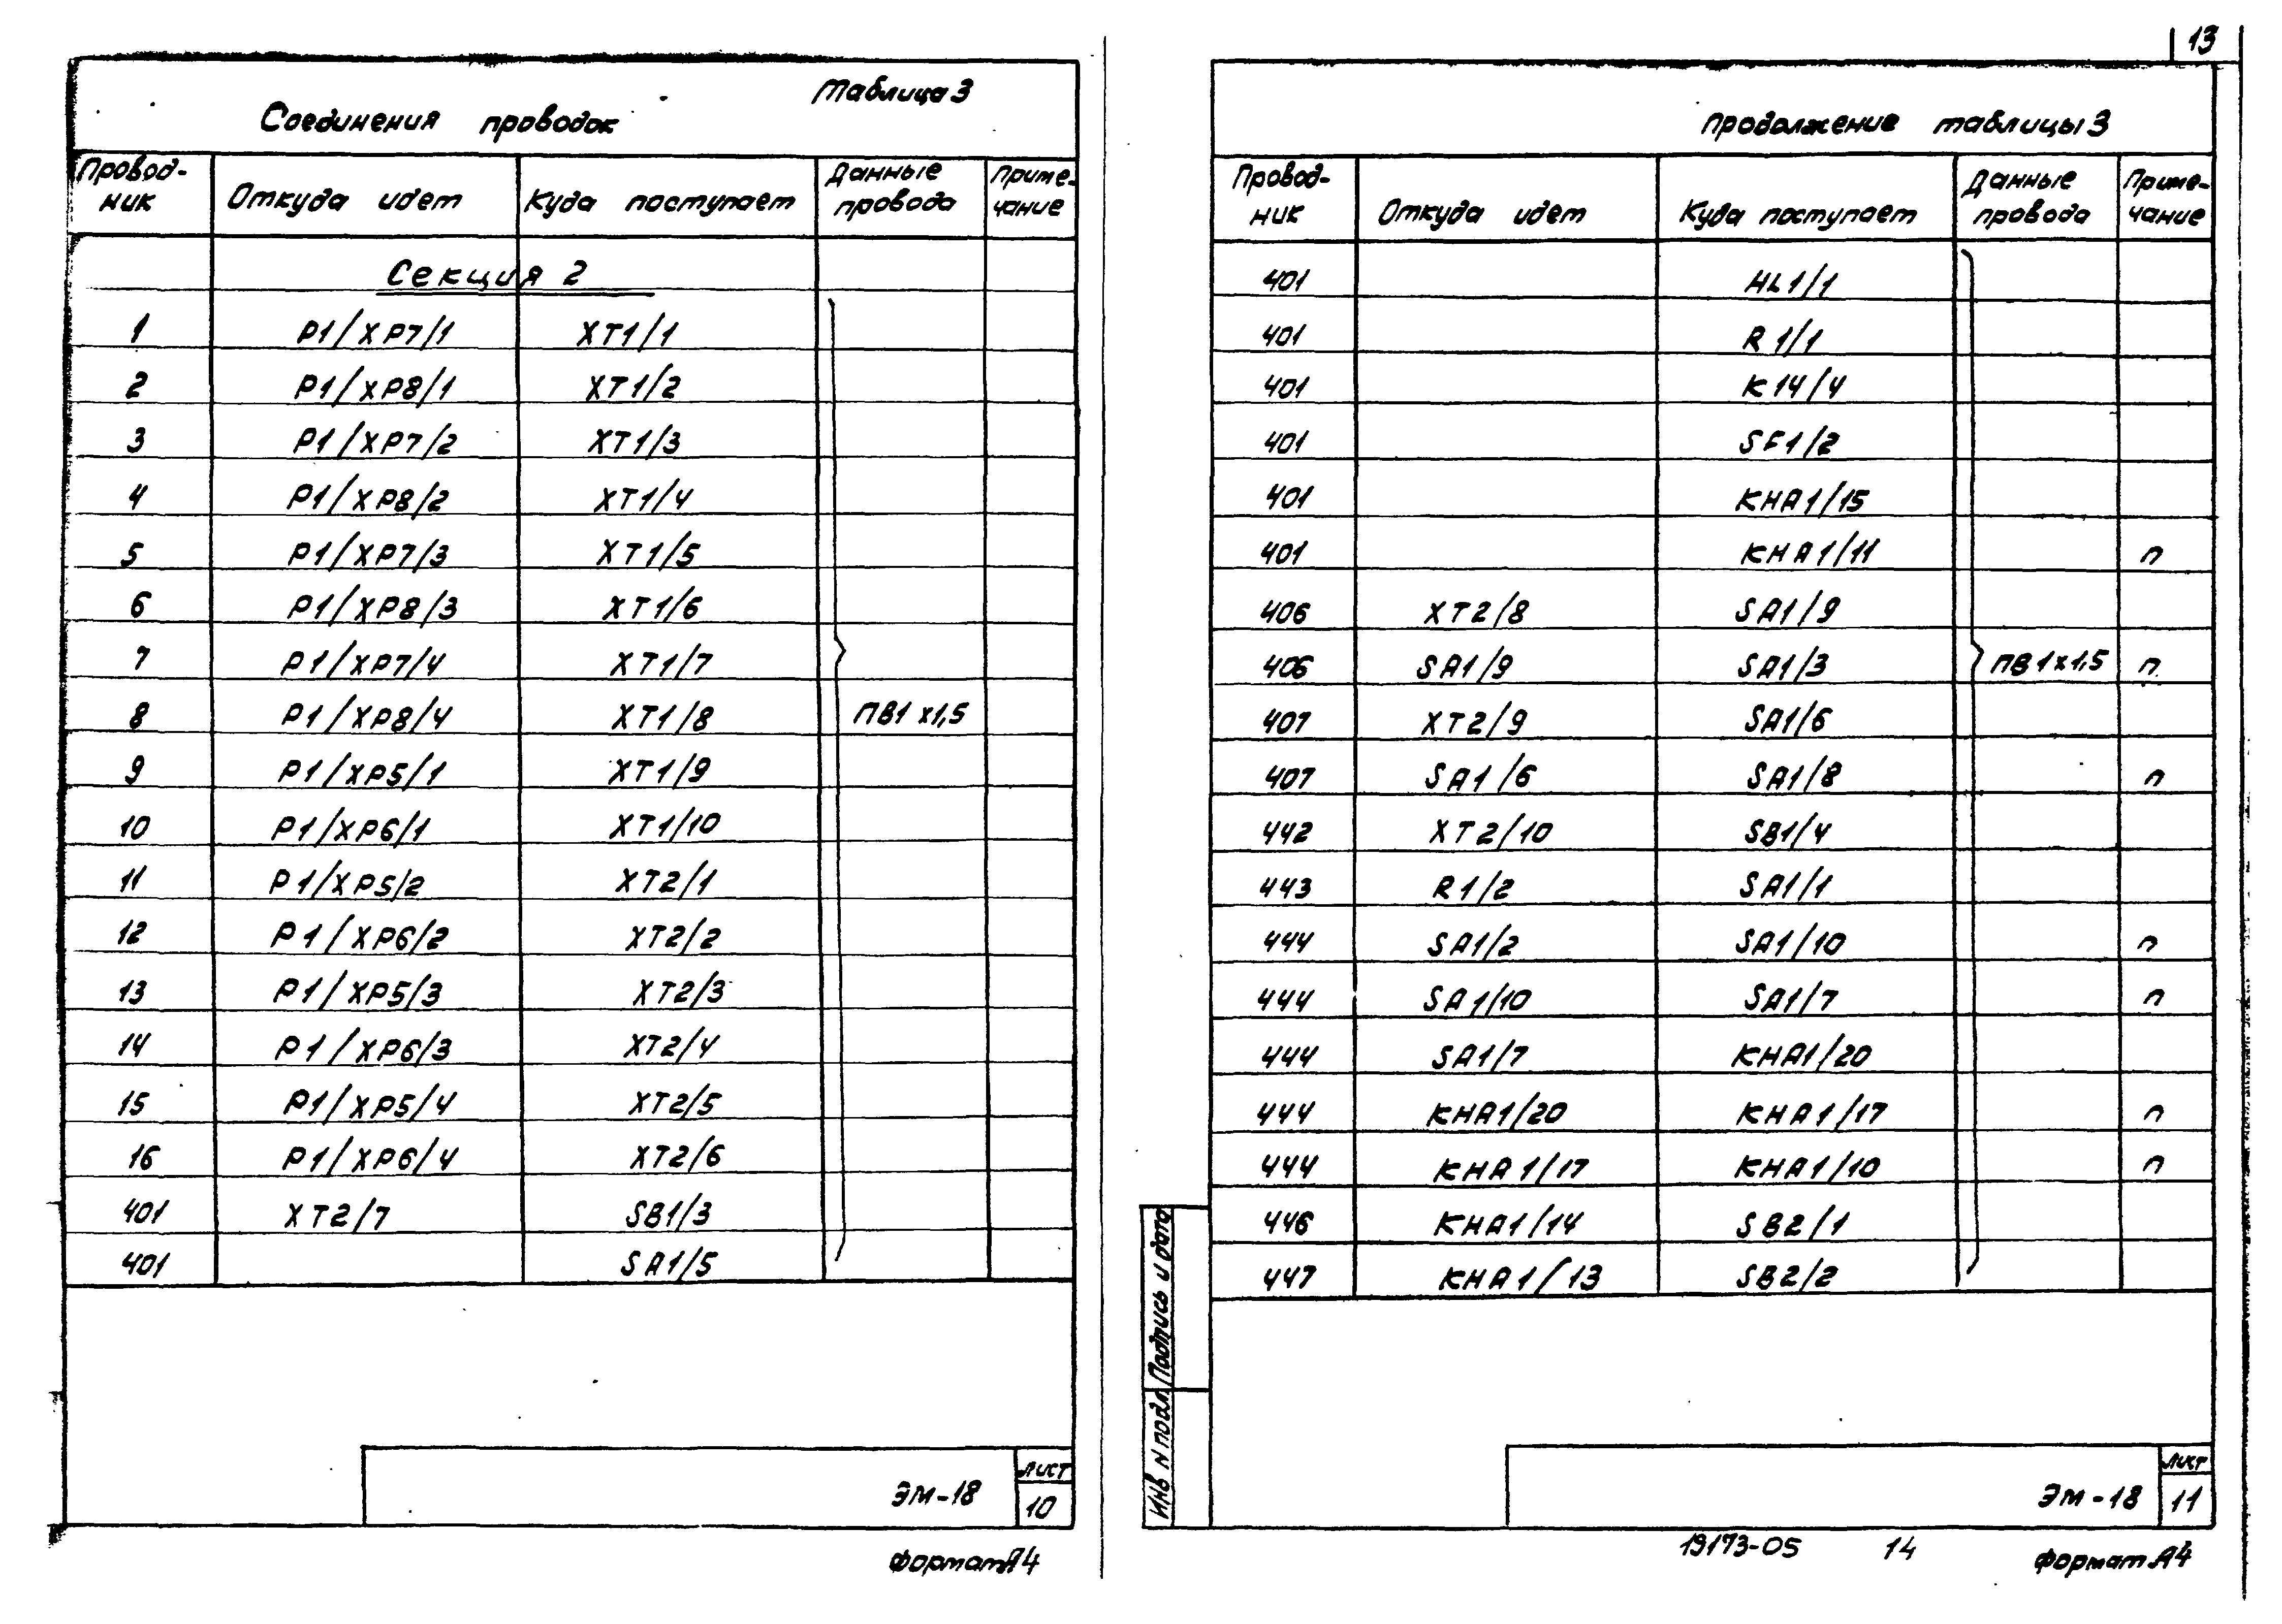 Таблица 3
Соединения проводок
Провод-ник Откуда идет Куда поступает Данные провода Приме-чание
Секция 2
1 P1/XP7/1 XT1/1
2 P1/XP8/1 XT1/2
3 P1/XP7/2 XT1/3
4 P1/XP8/2 XT1/4
5 P1/XP7/3 XT1/5
6 P1/XP8/3 XT1/6
7 P1/XP7/4 XT1/7
8 P1/XP8/4 XT1/8 ПВ1 х1,5
9 P1/XP5/1 XT1/9
10 P1/XP6/1 XT1/10
11 P1/XP5/2 XT2/1
12 P1/XP6/2 XT2/2
13 P1/XP5/3 XT2/3
14 P1/XP6/3 XT2/4
15 P1/XP5/4 XT2/5
16 P1/XP6/4 XT2/6
401 XT2/7 SB1/3
401 SA1/5
ЭМ-18
Лист
10
Формат А4
13
Продолжение таблицы 3
Провод-ник Откуда идет Куда поступает Данные провода Приме-чание
401 HL1/1
401 R1/1
401 K14/4
401 SF1/2
401 KHA1/15
401 KHA1/11 п
406 XT2/8 SA1/9
406 SA1/9 SA1/3 ПВ1х1,5 п
407 XT2/9 SA1/6
407 SA1/6 SA1/8 п
442 XT2/10 SB1/4
443 R1/2 SA1/1
444 SA1/2 SA1/10 п
444 SA1/10 SA1/7 п
444 SA1/7 KHA1/20
444 KHA1/20 KHA1/17 п
444 KHA1/17 KHA1/10 п
446 KHA1/14 SB2/1
447 KHA1/13 SB2/2
Инв N подл. Подпись и дата
ЭМ-18
Лист
11
19173-05 14
Формат А4